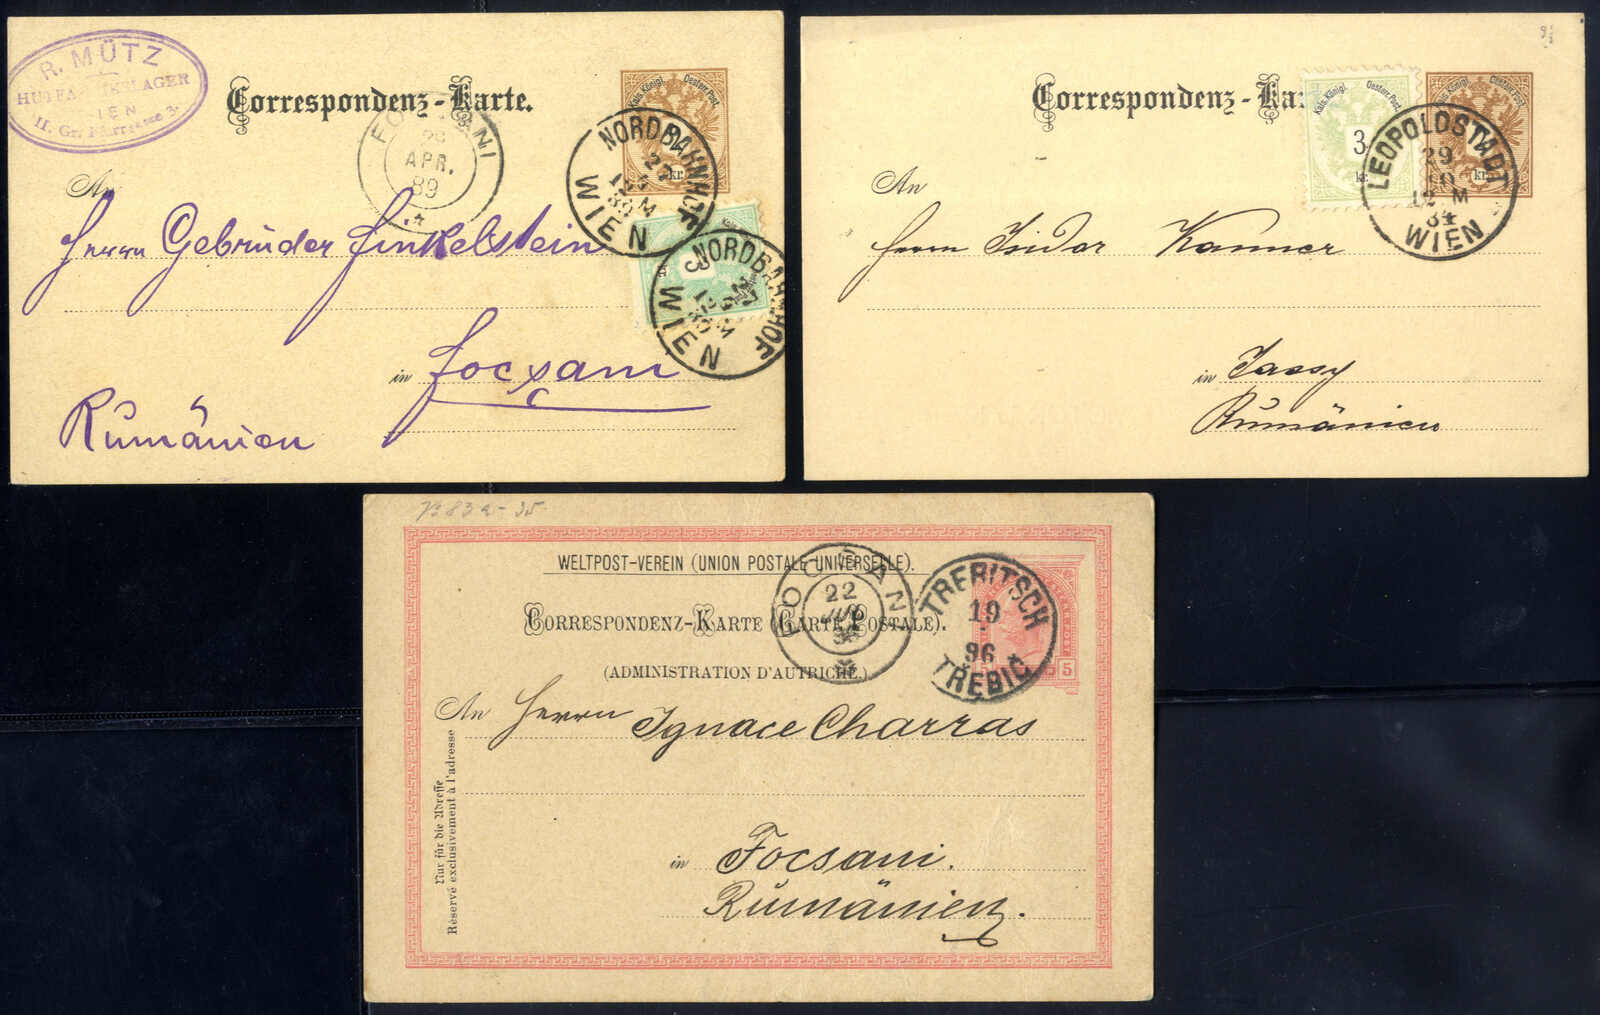 R. MÜTZ
WIEN
Correspondenz-Karte.
Kais. Königl. Oesterr. Post.
2
kr.
FOCSANI
28
APR.
89
NORDBAHNHOF
WIEN
3
NORDBAHNHOF
WIEN
An
Herrn Gebrüder Finkelstein
in Focsani
Rumänien
Correspondenz-Ka
Kais. Königl. Oesterr. Post.
3
kr.
Kais. Königl. Oesterr. Post.
kr.
LEOPOLDSTADT
29
10
12 M
84
WIEN
An
Herrn Isidor Kanner
in Jassy
Rumänien
WELTPOST-VEREIN (UNION POSTALE UNIVERSELLE).
CORRESPONDENZ-KARTE (CARTE POSTALE).
(ADMINISTRATION D'AUTRICHE.)
FOCSANI
22
TREBITSCH
19
96
TŘEBIČ
5
An Herrn Ignace Charras
in Focsani.
Rumänien.
Nur für die Adresse
Réservé exclusivement à l'adresse